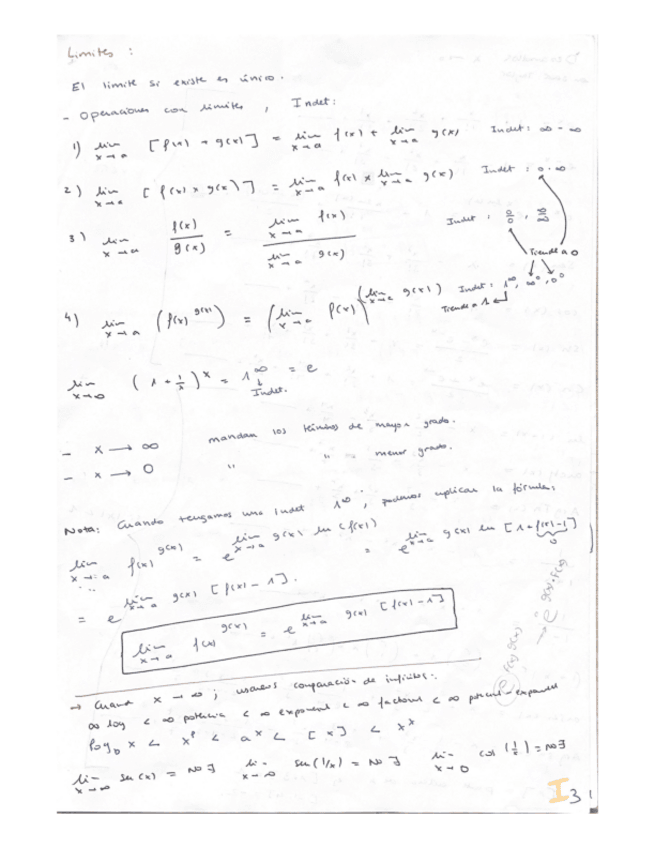 Limites :
El limite si existe es único.
- Operaciones con limites , Indet:
1) lim x→a [f(x) + g(x)] = lim x→a f(x) + lim x→a g(x) Indet: ∞ - ∞
2) lim x→a [f(x) × g(x)] = lim x→a f(x) × lim x→a g(x) Indet : 0 · ∞
3) lim x→a f(x)/g(x) = lim x→a f(x) / lim x→a g(x) Indet : 0/0 , ∞/∞
Tiende a 0
4) lim x→a (f(x)^g(x)) = (lim x→a f(x))^(lim x→a g(x)) Indet: 1^∞, ∞^0, 0^0
Tiende a 1
lim x→∞ (1 + 1/x)^x = 1^∞ = e
Indet.
- x → ∞ mandan los términos de mayor grado.
- x → 0 " " menor grado.
Nota: Cuando tengamos una Indet 1^∞, podemos aplicar la fórmula:
lim x→a f(x)^g(x) = e^(lim x→a g(x) ln (f(x))) = e^(lim x→a g(x) ln [1+f(x)-1])
0
= e^(lim x→a g(x) [f(x) - 1]).
lim x→a f(x)^g(x) = e^(lim x→a g(x) [f(x) - 1])
→ Cuando x → ∞ ; usamos comparación de infinitos.
∞ log < ∞ potencia < ∞ exponenc < ∞ factorial < ∞ potencial-exponencial
log_b x < x^p < a^x < [x] < x^x
lim x→∞ sen(x) = No ∃ lim x→∞ sen(1/x) = No ∃ lim x→0 cos (1/x) = no ∃
I 31